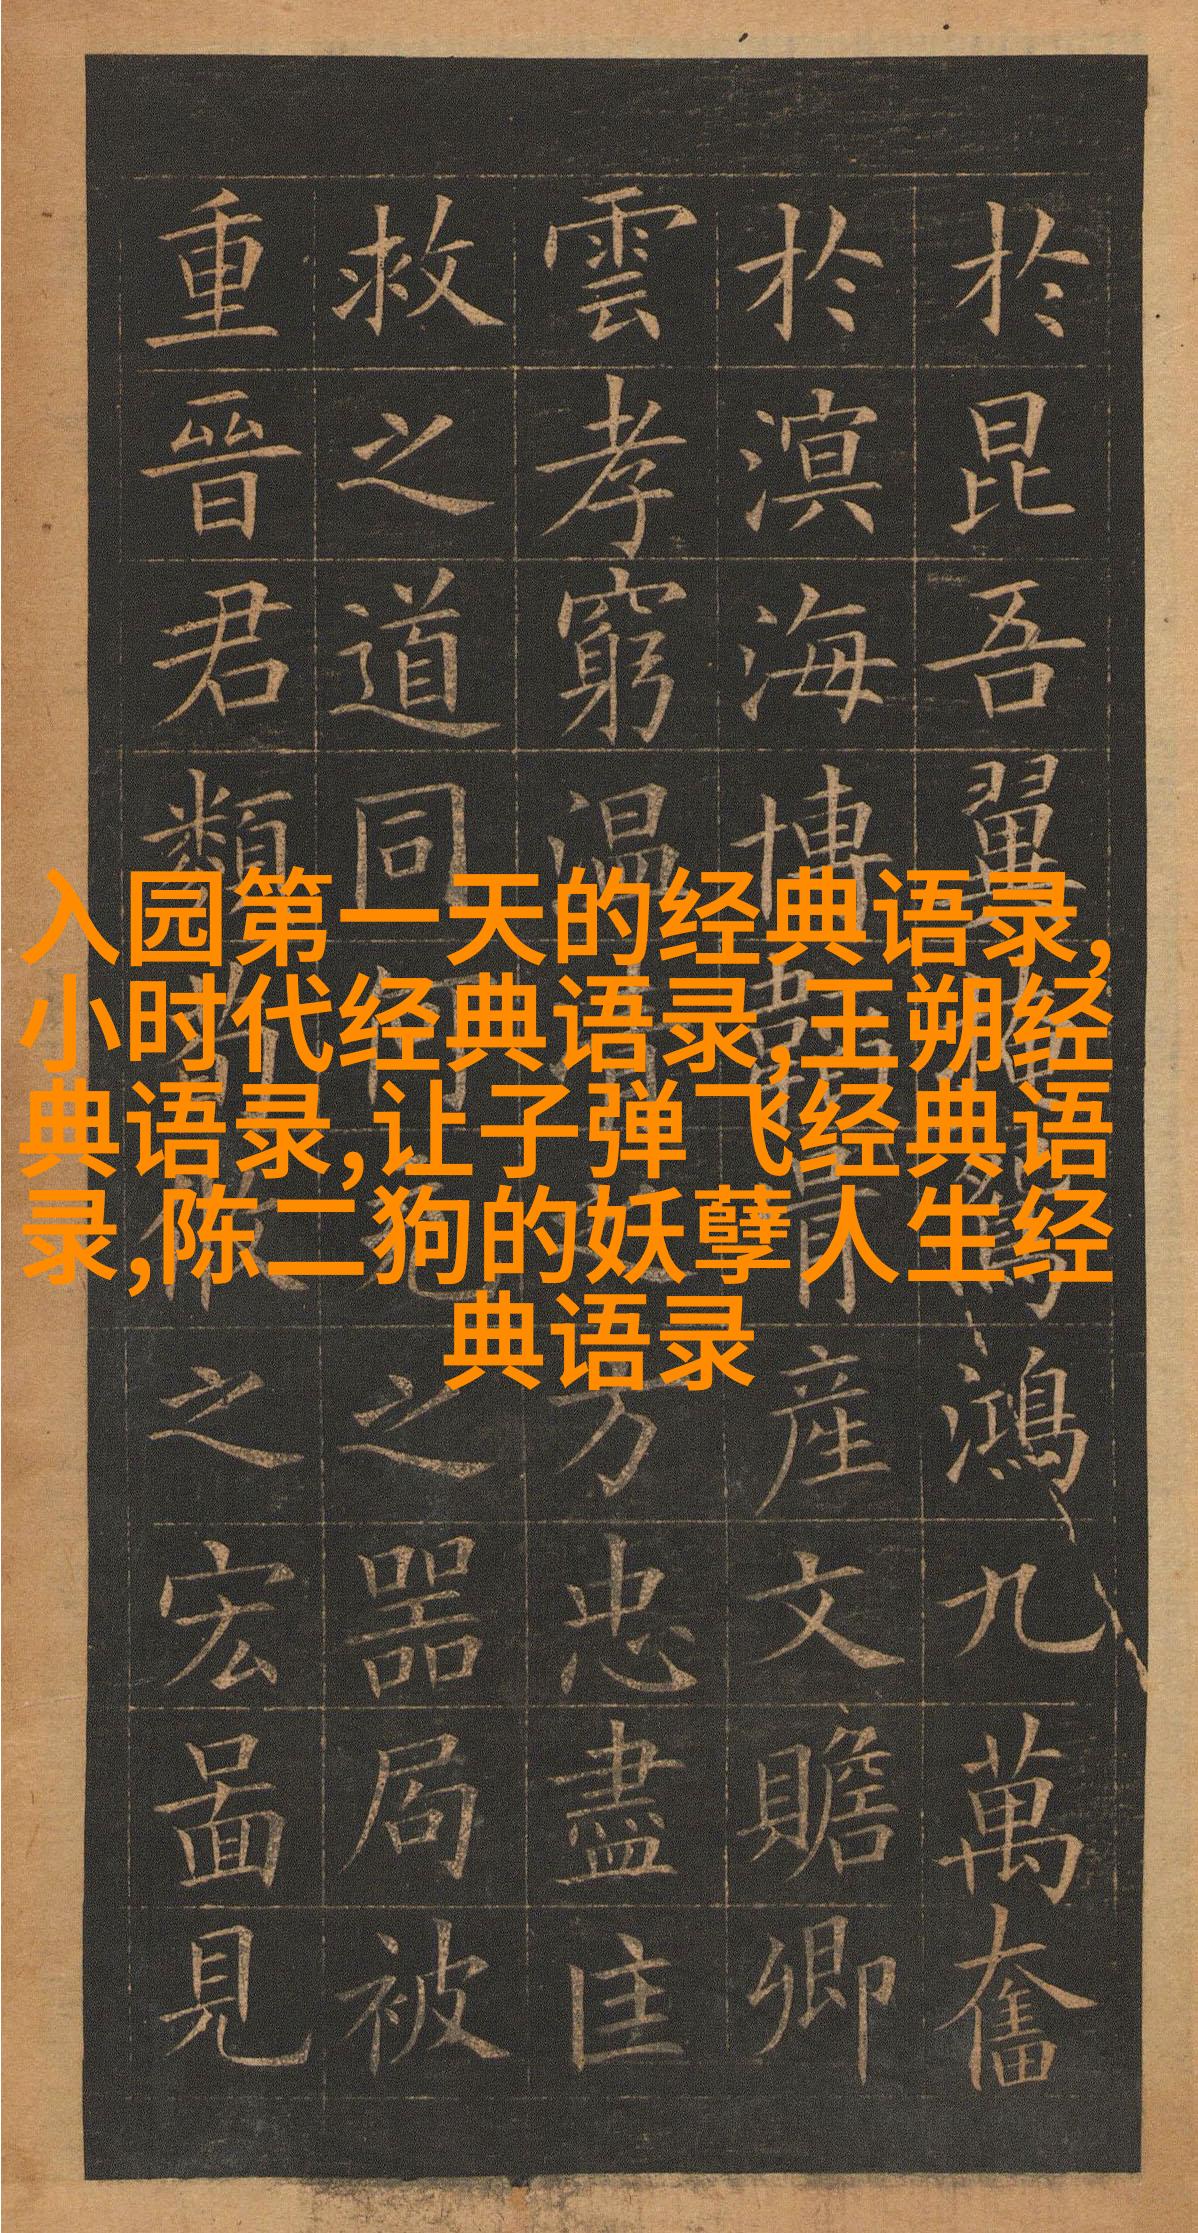 於昆吾翼鴻九萬奮
於溟海博產文贍卿
雲孝窮温方忠盡匡
救之道同之器局被
重晉君類之宏啚見
入园第一天的经典语录,
小时代经典语录,王朔经
典语录,让子弹飞经典语
录,陈二狗的妖孽人生经
典语录